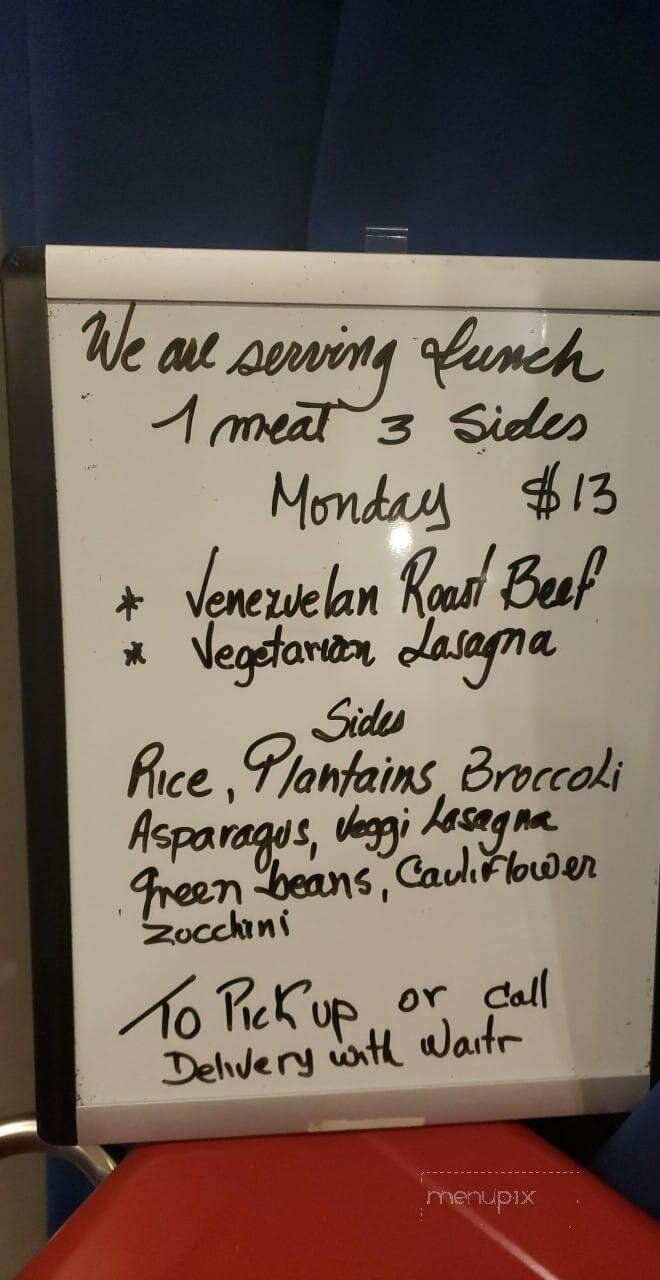 We are serving Lunch
1 meat 3 Sides
Monday $13
* Venezuelan Roast Beef
* Vegetarian Lasagna
Sides
Rice, Plantains, Broccoli
Asparagus, Veggi Lasagna
green beans, Cauliflower
Zucchini
To Pick up or Call
Delivery with Waitr
menupix